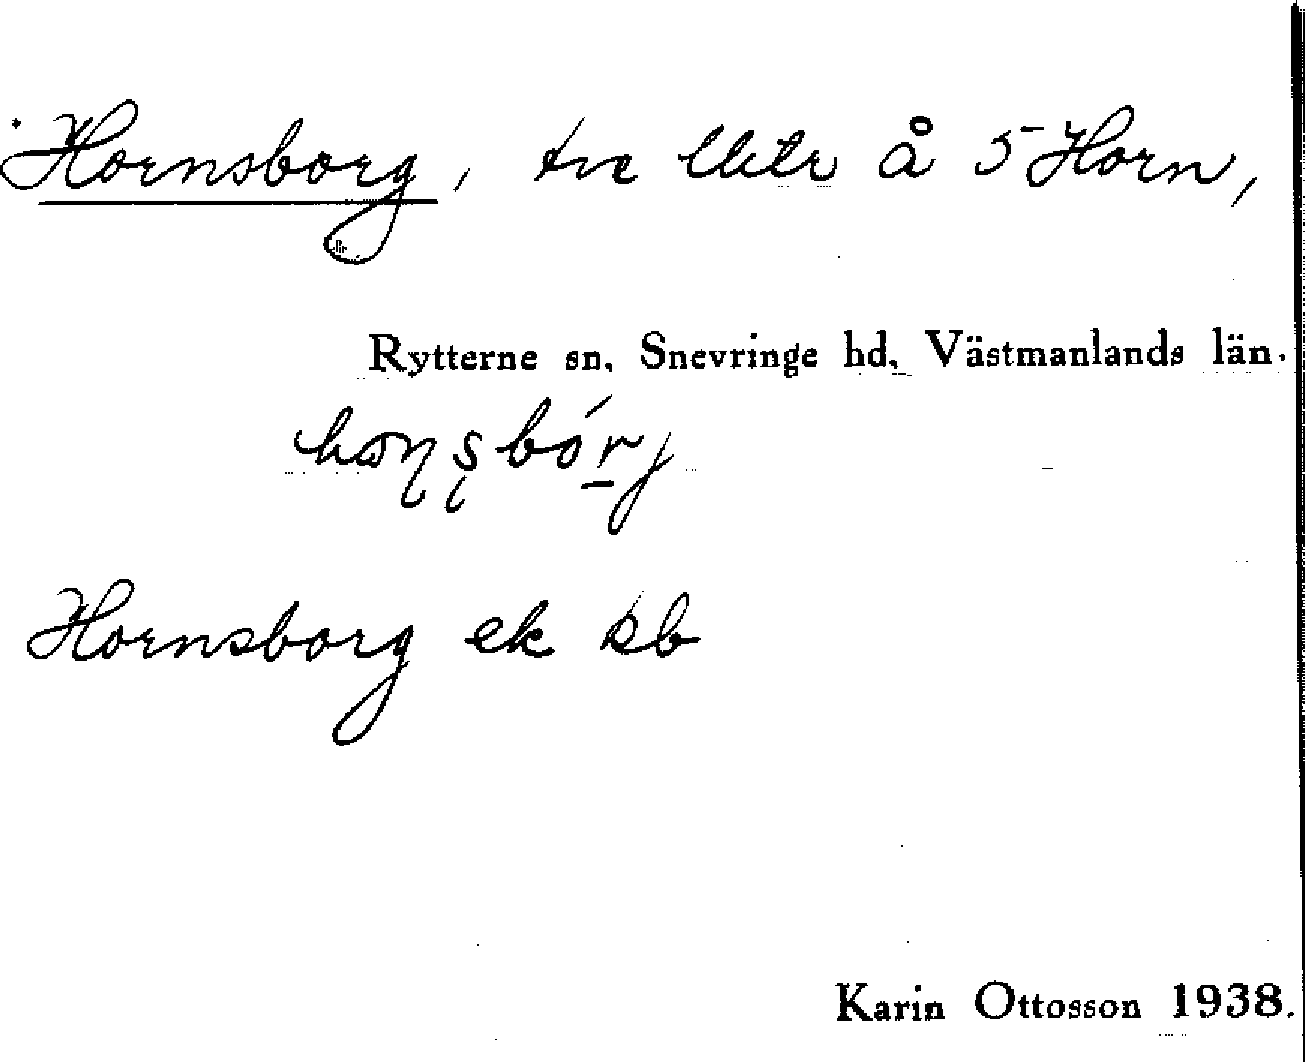 Hornsborg, tre lletr å 5 Horn,
Rytterne sn, Snevringe hd, Västmanlands län.
Hornsborg ek kb
Karin Ottosson 1938.